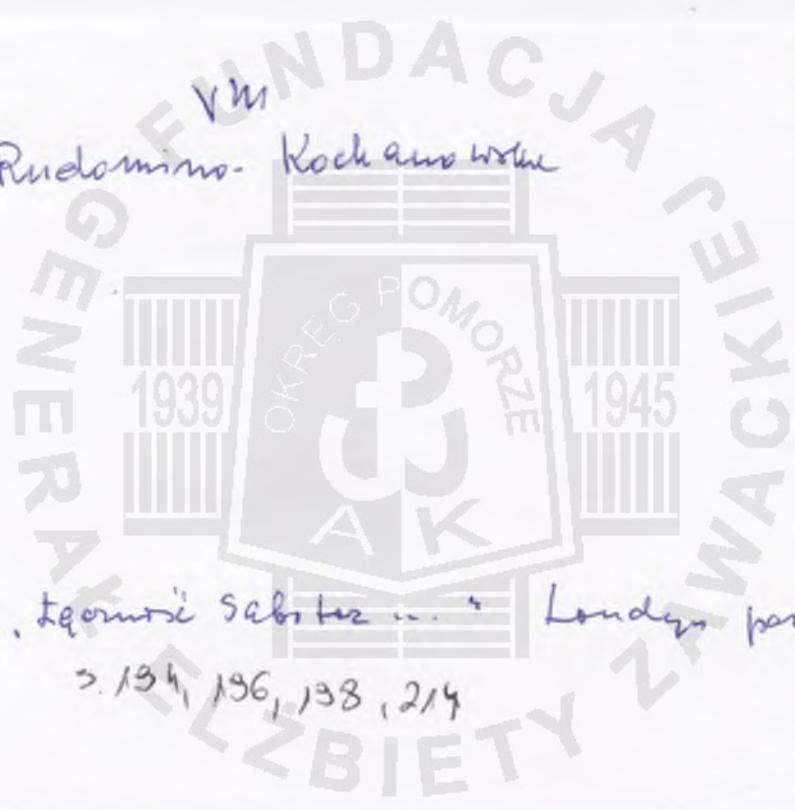 VIII
Rudomino-Kochanowska
"Łączność Sabotaż ..." Londyn
s. 194, 196, 198, 214
FUNDACJA GENERAŁ ELŻBIETY ZAWACKIEJ
OKRĘG POMORZE
1939 1945
AK